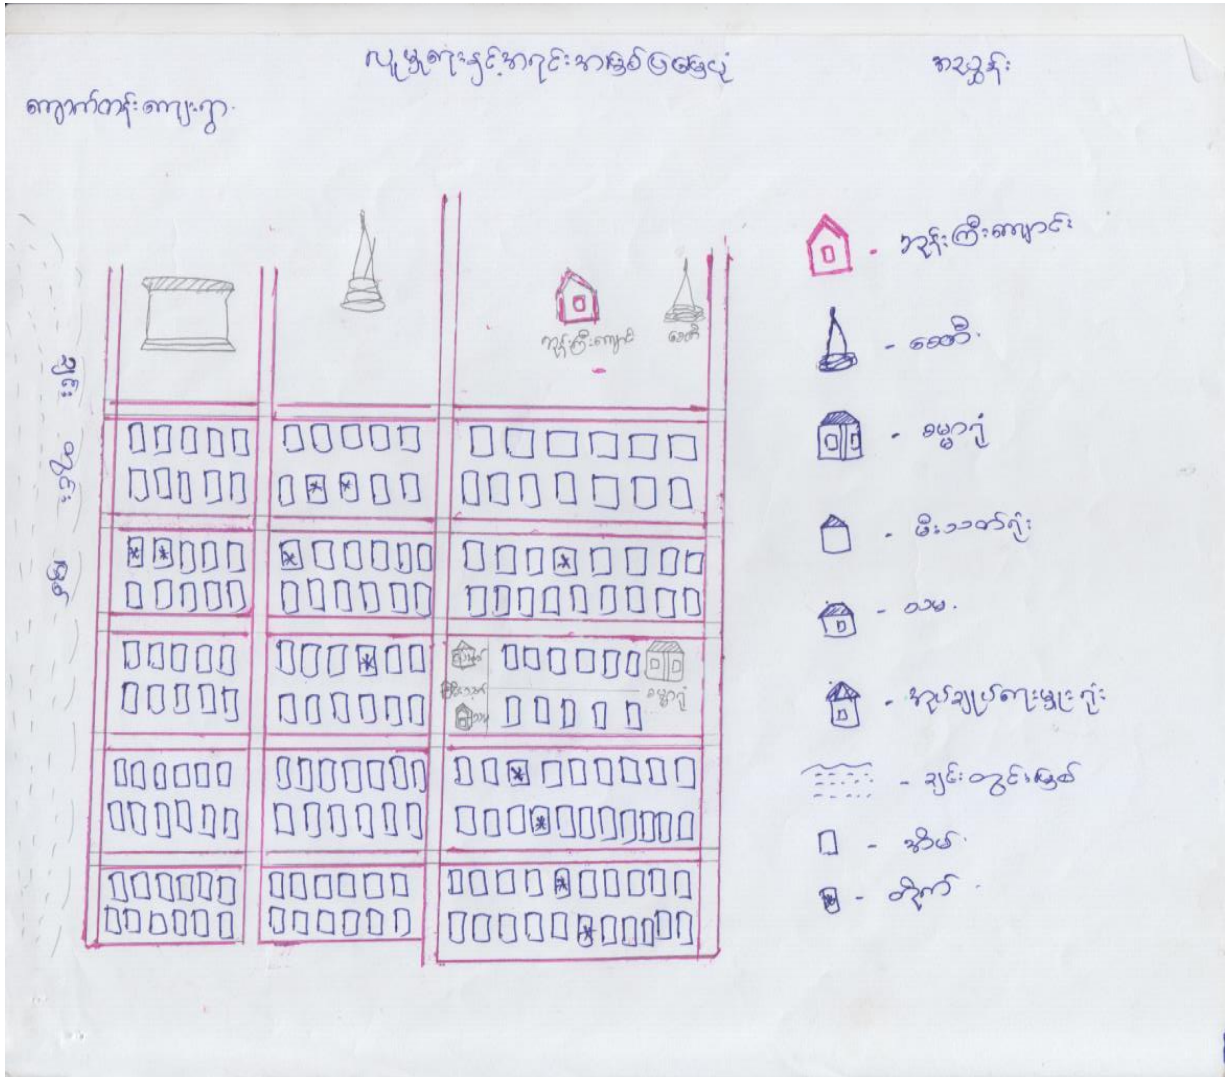 လူမှုရေးနှင့်အရင်းအမြစ်ပြမြေပုံ
အညွှန်း
ကျောက်တန်းကျေးရွာ
ဘုန်းကြီးကျောင်း
စေတီ
ချင်းတွင်းမြစ်
ဓမ္မာရုံ
- ဘုန်းကြီးကျောင်း
- စေတီ
- ဓမ္မာရုံ
- မီးသတ်ရုံး
- သမ
- အုပ်ချုပ်ရေးမှူးရုံး
- ချင်းတွင်းမြစ်
- အိမ်
- တိုက်